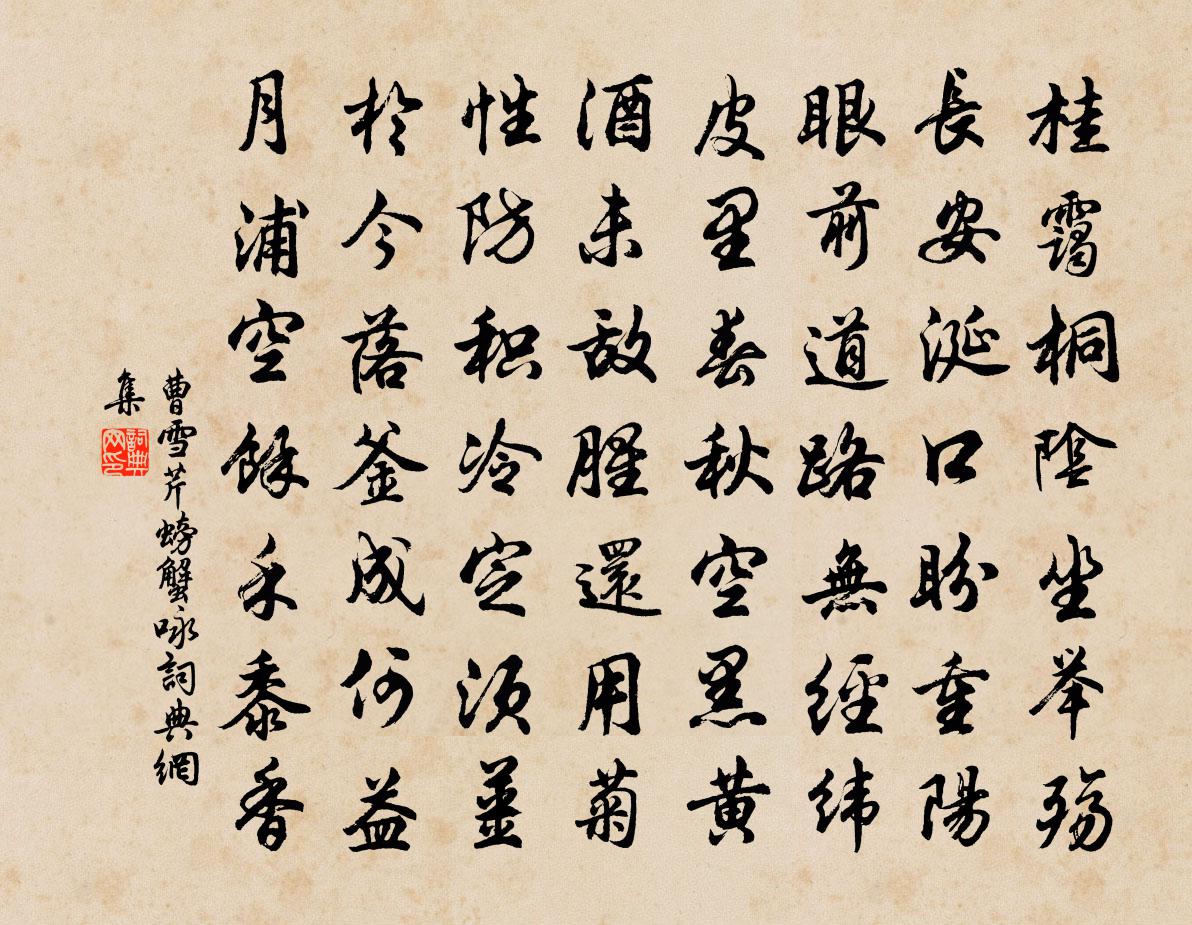 桂靄桐陰坐举殤
長安涎口盼重陽
眼前道路無經緯
皮里春秋空黑黄
酒未敌腥還用菊
性防积冷定须薑
於今落釜成何益
月浦空餘禾黍香
曹雪芹螃蟹咏詞典網
集
詞典网印